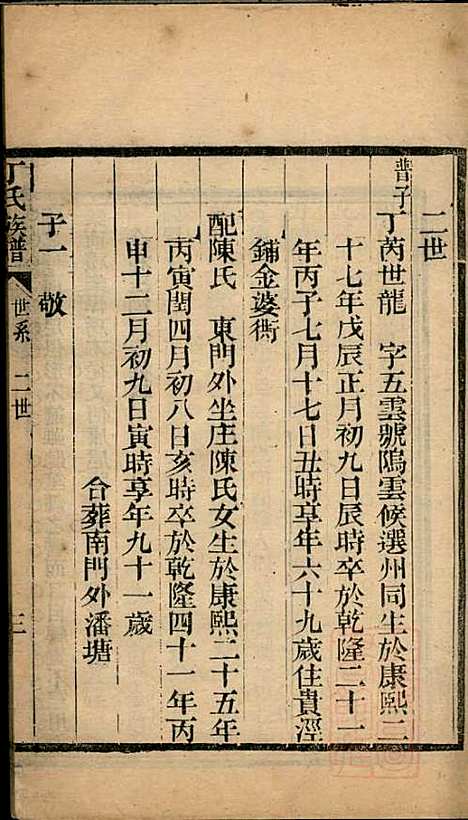 二世
普子
丁芮世龍　字五雲號隖雲候選州同生於康熙二
十七年戊辰正月初九日辰時卒於乾隆二十一
年丙子七月十七日丑時享年六十九歲住貴涇
鋪金婆衖
配陳氏　東門外坐庄陳氏女生於康熙二十五年
丙寅閏四月初八日亥時卒於乾隆四十一年丙
申十二月初九日寅時享年九十一歲
合葬南門外潘塘
子一　敬
丁氏族譜　世系　二世　三